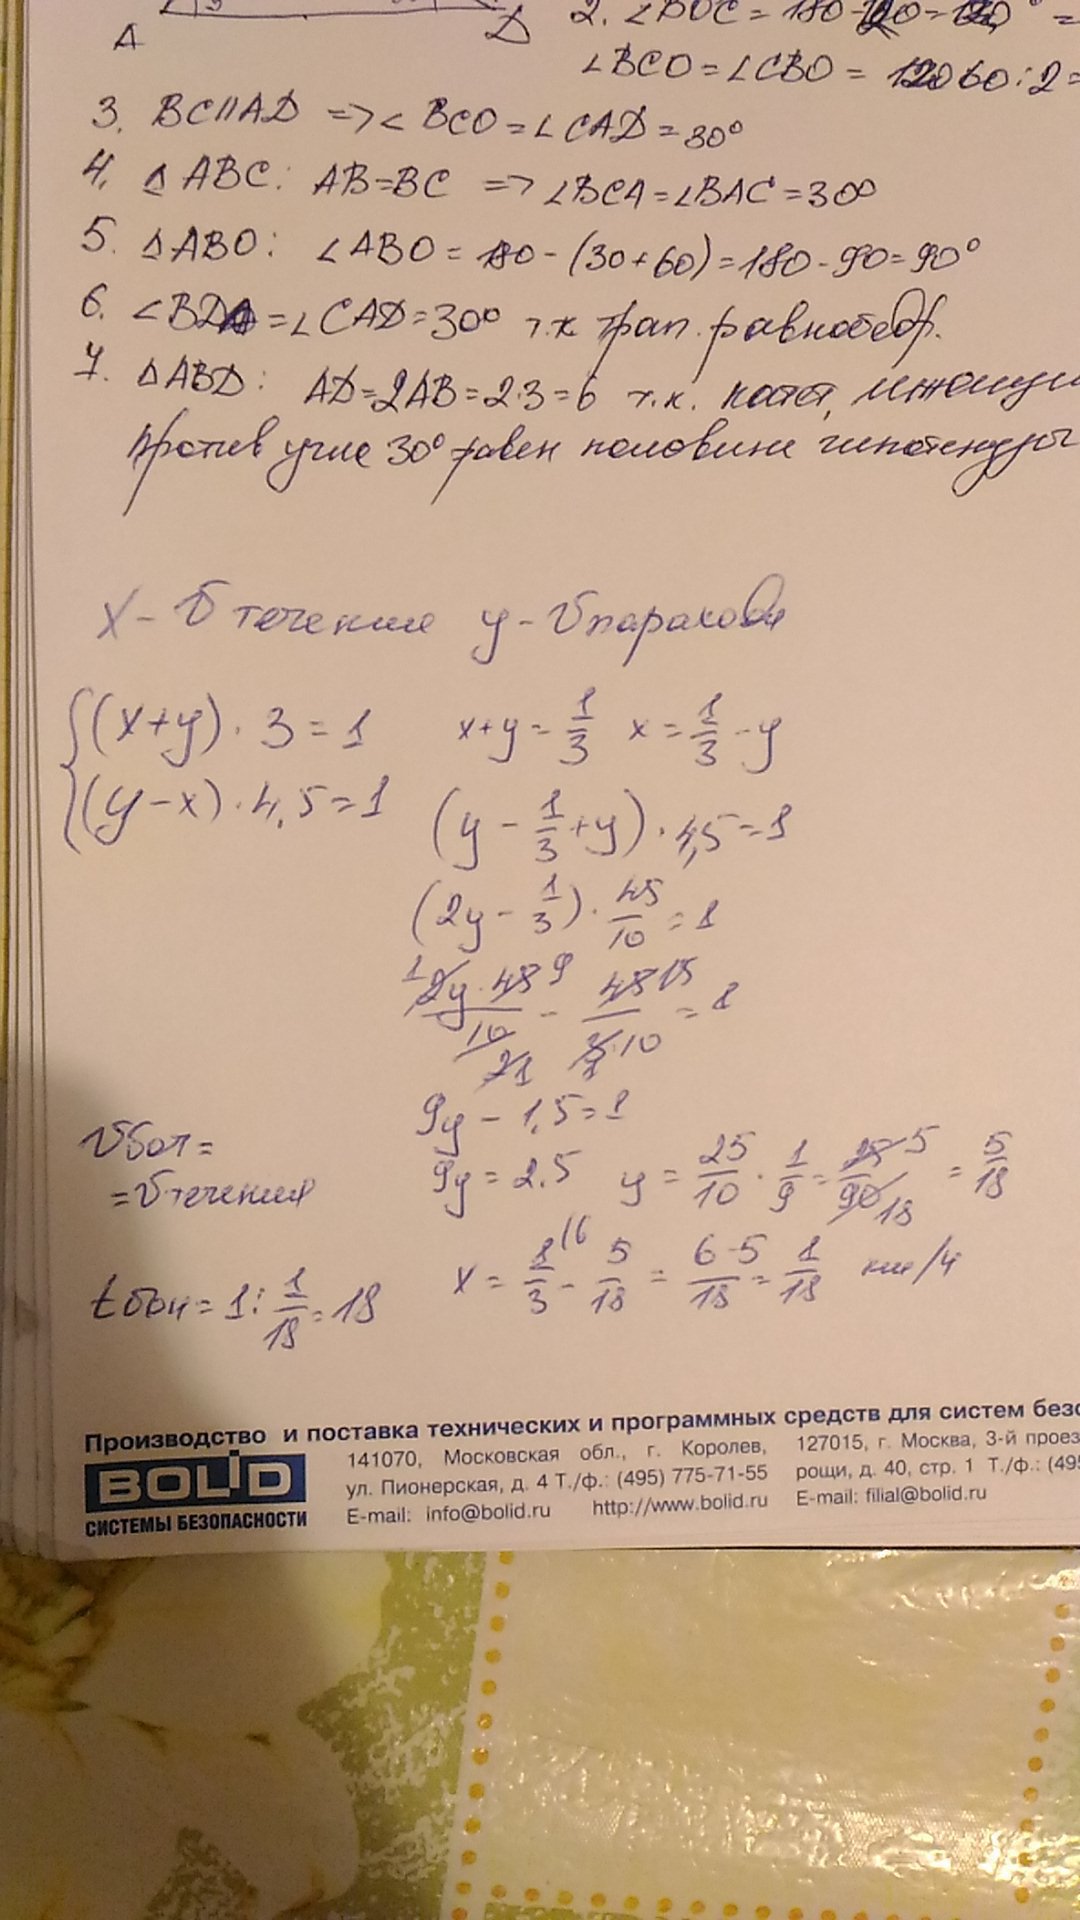 A D 2. ∠BOC = 180 - 120 =
∠BCO = ∠CBO = 60 : 2 =
3. BC || AD => ∠ BCO = ∠ CAD = 30°
4. Δ ABC : AB = BC => ∠BCA = ∠BAC = 30°
5. Δ ABO : ∠ ABO = 180 - (30 + 60) = 180 - 90 = 90°
6. ∠BDA = ∠ CAD = 30° т.к трап. равнобедр.
7. Δ ABD : AD = 2AB = 2·3 = 6 т.к. катет,
против угла 30° равен половине гипотенузы
x - v течение y - v парахода
{(x+y) · 3 = 1 x+y = 1/3 x = 1/3 - y
(y-x) · 4,5 = 1
(y - 1/3 + y) · 4,5 = 1
(2y - 1/3) · 45/10 = 1
2y · 45/10 - 45/3·10 = 1
9y - 1,5 = 1
vбот =
= v течения
9y = 2.5 y = 25/10 · 1/9 = 25/90 = 5/18
x = 1/3 - 5/18 = 6-5/18 = 1/18 км/ч
= 1 : 1/18 = 18
Производство и поставка технических и программных средств для систем безо
BOLID
СИСТЕМЫ БЕЗОПАСНОСТИ
141070, Московская обл., г. Королев,
ул. Пионерская, д. 4 Т./ф.: (495) 775-71-55
E-mail: info@bolid.ru http://www.bolid.ru
127015, г. Москва, 3-й проез
рощи, д. 40, стр. 1 Т./ф.: (495
E-mail: filial@bolid.ru